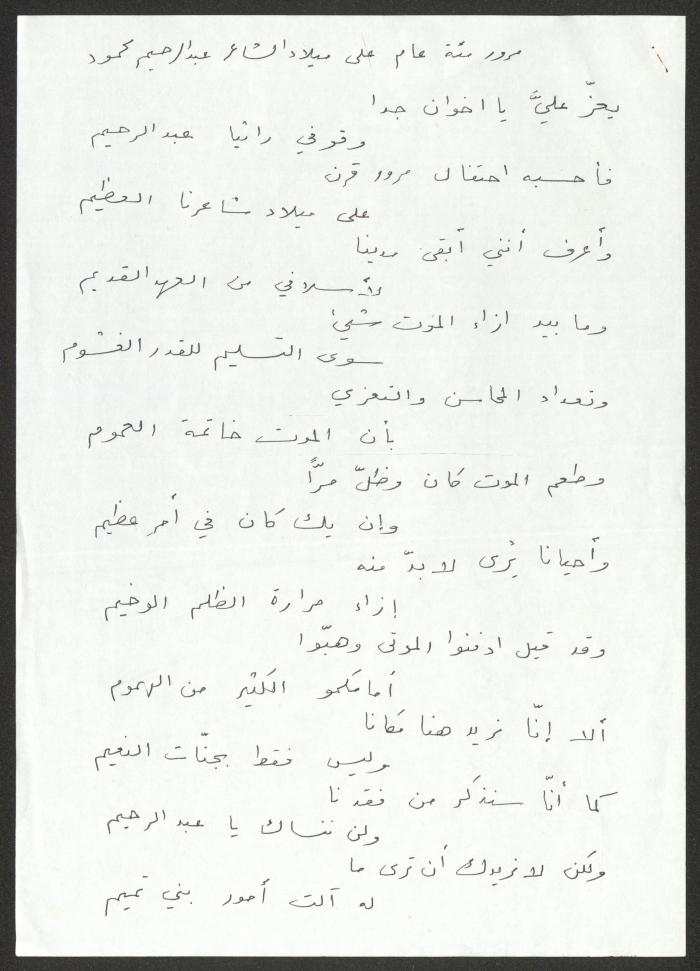 مرور مئة عام على ميلاد الشاعر عبدالرحيم محمود
يعزّ عليَّ يا اخوان جدا
وقوفي راثيا عبد الرحيم
فأحسبه احتفال مرور قرن
على ميلاد شاعرنا العظيم
وأعرف أنني أبقى مدينا
لأسلافي من العهد القديم
وما بيد ازاء الموت شيئ
سوى التسليم للقدر الغشوم
وتعداد المحاسن والتعزي
بأن الموت خاتمة العموم
وطعم الموت كان وظلّ مرّاً
وإن يك كان في أمر عظيم
وأحيانا يُرى لا بدّ منه
إزاء مرارة الظلم الوخيم
وقد قيل ادفنوا الموتى وهبّوا
أمامكمو الكثير من الهموم
ألا إنّا نريد هنا مكانا
وليس فقط بجنّات النعيم
كما أنّا سنذكر من فقدنا
ولن ننساك يا عبد الرحيم
ولكن لا نريدك أن ترى ما
له آلت أمور بني تميم